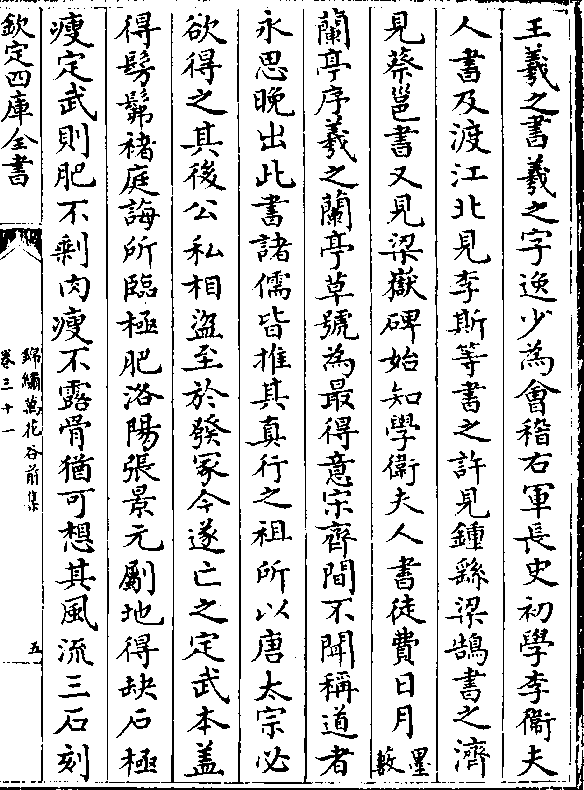 王羲之書羲之字逸少為會稽右軍長史初學李衞夫
人書及渡江北見李斯等書之許見鍾繇梁鵠書之濟
見蔡邕書又見梁嶽碑始知學衞夫人書徒費日月墨藪
蘭亭序羲之蘭亭草號為最得意宋齊間不聞稱道者
永思晚出此書諸儒皆推其真行之祖所以唐太宗必
欲得之其後公私相盜至於發冢今遂亡之定武本蓋
得髣髴褚庭誨所臨極肥洛陽張景元劚地得缺石極
瘦定武則肥不剩肉瘦不露骨猶可想其風流三石刻
欽定四庫全書
錦繡萬花谷前集
卷三十一
五